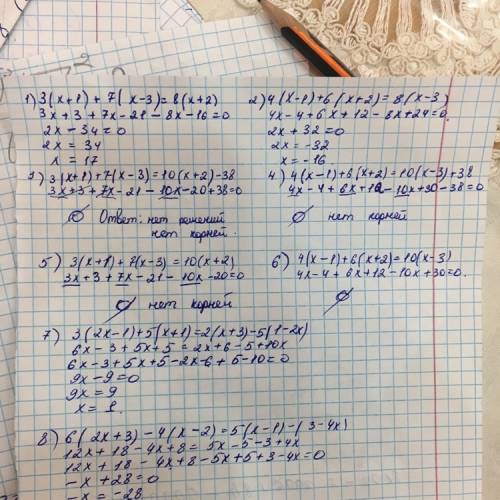 1) 3(x+1) + 7(x-3) = 8(x+2)
3x + 3 + 7x - 21 - 8x - 16 = 0
2x - 34 = 0
2x = 34
x = 17
2) 4(x-1)+6(x+2) = 8(x-3)
4x - 4 + 6x + 12 - 8x + 24 = 0
2x + 32 = 0
2x = -32
x = -16
3(x+1)+7(x-3) = 10(x+2)-38
3x+3+7x-21-10x-20+38=0
∅ Ответ: нет решений
нет корней.
4) 4(x-1)+6(x+2) = 10(x-3)+38
4x-4+6x+12-10x+30-38=0
∅ нет корней
5) 3(x+1)+7(x-3) = 10(x+2)
3x+3+7x-21-10x-20=0
∅ нет корней
6) 4(x-1)+6(x+2) = 10(x-3)
4x-4+6x+12-10x+30=0.
∅
7) 3(2x-1)+5(x+1)=2(x+3)-5(1-2x)
6x-3+5x+5=2x+6-5+10x
6x-3+5x+5-2x-6+5-10=0
9x-9=0
9x=9
x=1.
8) 6(2x+3)-4(x-2)=5(x-1)-(3-4x)
12x+18-4x+8=5x-5-3+4x
12x+18-4x+8-5x+5+3-4x=0
-x+28=0
-x=-28